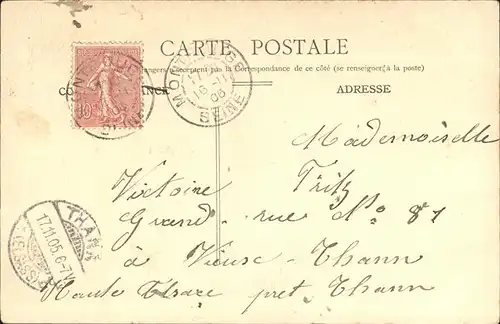 CARTE POSTALE
étrangers n'acceptent pas la Correspondance de ce côté (se renseigner à la poste)
ADRESSE
MONTROUGE
SEINE
THANN
17.11.05. 6-7V
(ELSASS)
Mademoiselle
Victoire Fritz
Grand-rue No 87
à Vieux-Thann
Haute Alsace près Thann